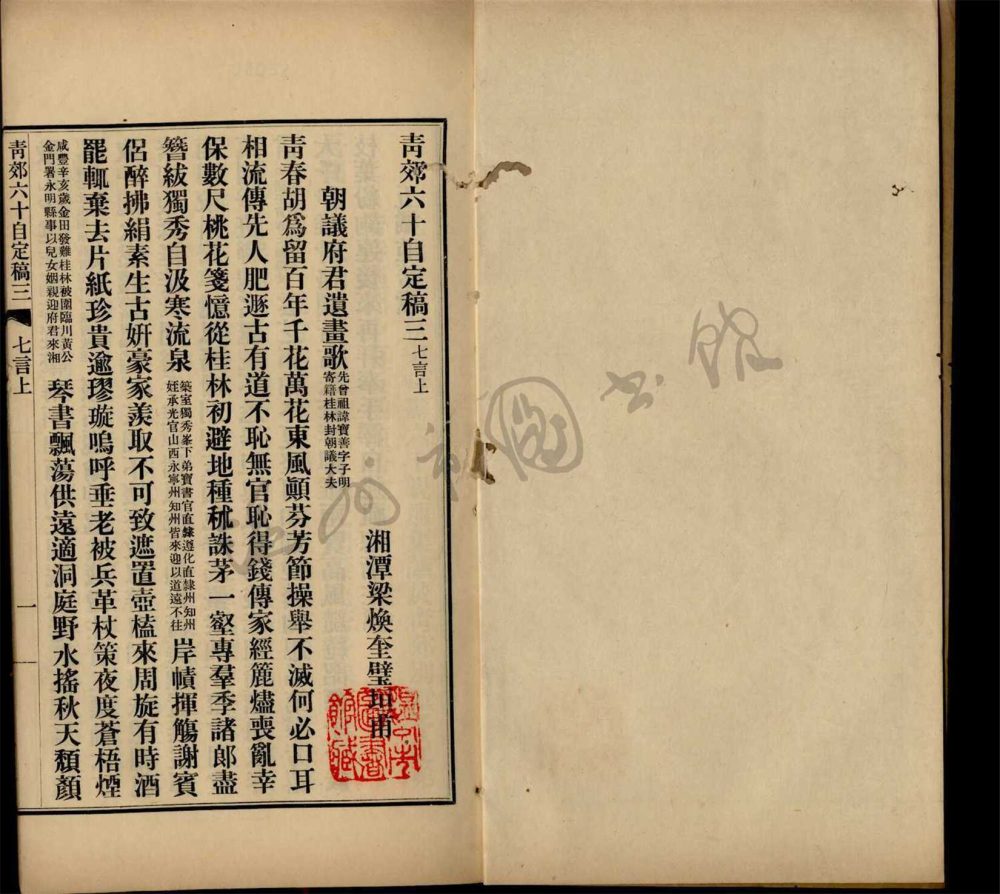 青郊六十自定稿三 七言上
湘潭梁煥奎璧垣甫
朝議府君遺畫歌 先曾祖諱寶善字子明寄籍桂林封朝議大夫
青春胡爲留百年千花萬花東風顚芬芳節操舉不滅何必口耳
相流傳先人肥遯古有道不恥無官恥得錢傳家經簏燼喪亂幸
保數尺桃花箋憶從桂林初避地種秫誅茅一壑專羣季諸郎盡
簪紱獨秀自汲寒流泉 築室獨秀峯下弟寶書官直隸遵化直隸州知州姪承光官山西永寧州知州皆來迎以道遠不往 岸幘揮觴謝賓
侶醉拂絹素生古姸豪家羨取不可致遮置壺榼來周旋有時酒
罷輒棄去片紙珍貴逾璆璇嗚呼垂老被兵革杖策夜度蒼梧煙
咸豐辛亥歲金田發難桂林被圍臨川黃公金門署永明縣事以兒女姻親迎府君來湘 琴書飄蕩供遠適洞庭野水搖秋天頽顏
青郊六十自定稿三 七言上 一
圖書館